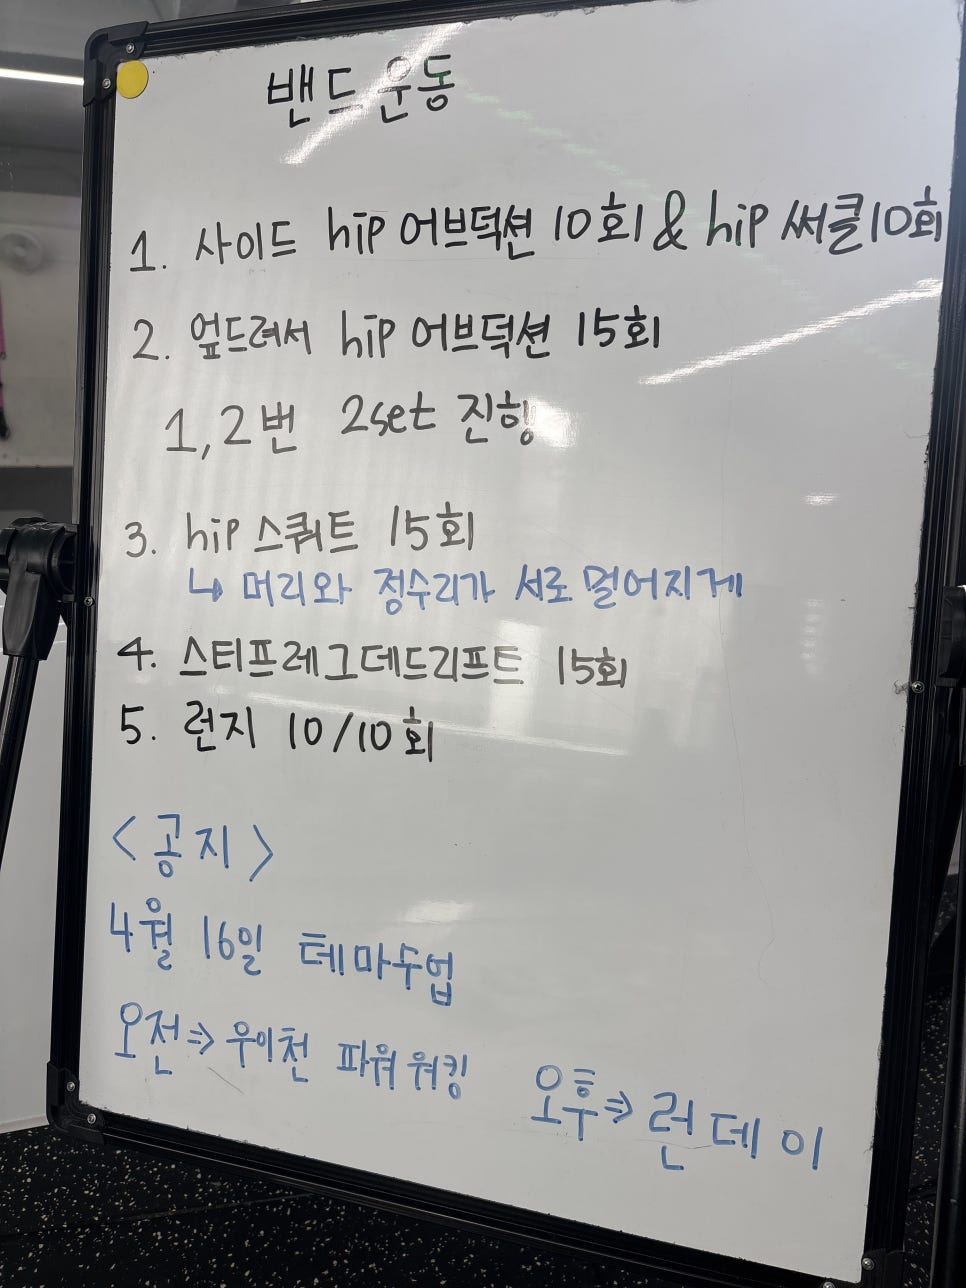 밴드 운동
1. 사이드 hip 어브덕션 10회 & hip 써클 10회
2. 엎드려서 hip 어브덕션 15회
1, 2번 2set 진행
3. hip 스쿼트 15회
↳ 머리와 정수리가 서로 멀어지게
4. 스티프레그데드리프트 15회
5. 런지 10/10회
<공지>
4월 16일 테마수업
오전⇒우이천 파워워킹 오후⇒런데이